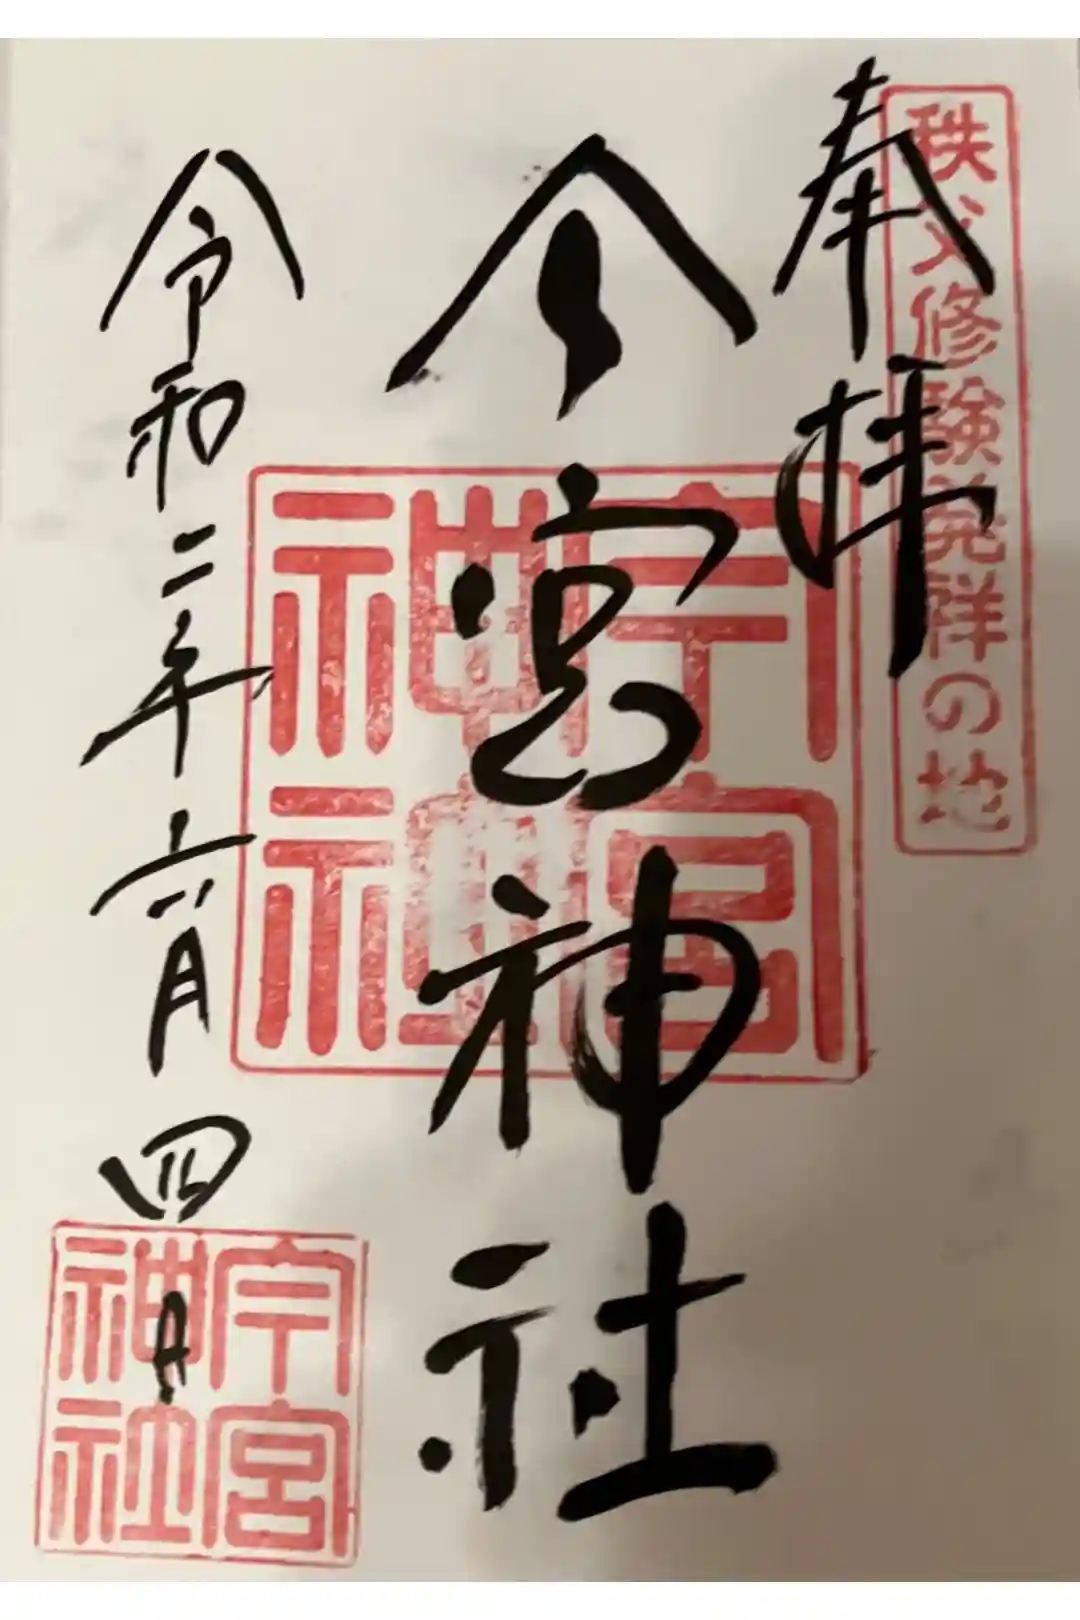 奉拝
秩父修験発祥の地
今宮神社
宇宮
神社
令和二年六月四日
宇宮
神社